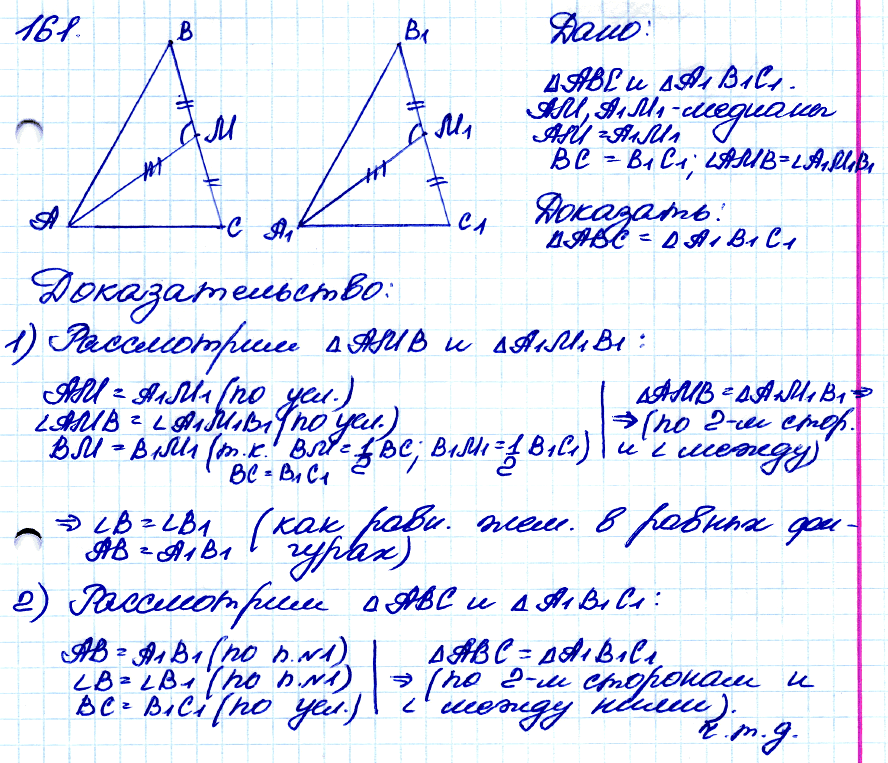 161.
B
M
A
C
B1
M1
A1
C1
Дано:
△ABC и △A1B1C1.
AM, A1M1 - медианы
AM = A1M1
BC = B1C1; ∠AMB = ∠A1M1B1
Доказать:
△ABC = △A1B1C1
Доказательство:
1) Рассмотрим △AMB и △A1M1B1:
AM = A1M1 (по усл.)
∠AMB = ∠A1M1B1 (по усл.)
BM = B1M1 (т.к. BM = 1/2 BC; B1M1 = 1/2 B1C1)
BC = B1C1
△AMB = △A1M1B1 ⇒
⇒ (по 2-м стор.
и ∠ между)
⇒ ∠B = ∠B1 (как равн. элем. в равных фи-
AB = A1B1 гурах)
2) Рассмотрим △ABC и △A1B1C1:
AB = A1B1 (по п.№1)
∠B = ∠B1 (по п.№1)
BC = B1C1 (по усл.)
△ABC = △A1B1C1
⇒ (по 2-м сторонам и
∠ между ними).
ч.т.д.